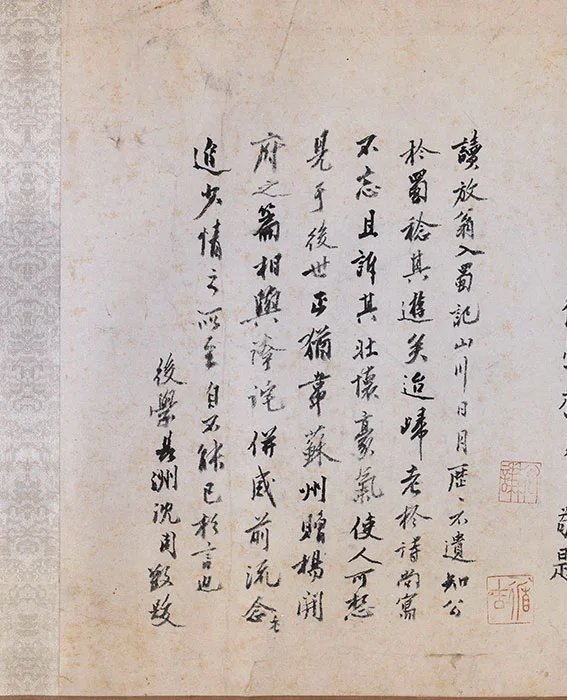 敬題
讀放翁入蜀記山川日月歷〻不遺知公
於蜀稔其遊矣迨歸老於詩尚寓
不忘且訴其壯懷豪氣使人可想
見于後世正猶韋蘇州贈楊開
府之篇相與誇詫併感前流念老
進少情之所至自不能已於言也
後學長洲沈周敬跋
循吉